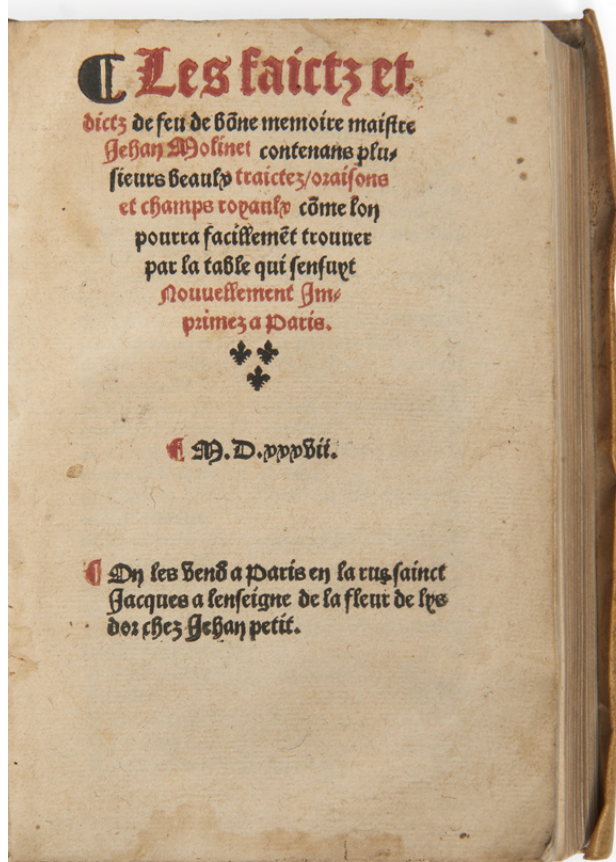 ¶ Les faictz et
dictz de feu de bõne memoire maistre
Jehan Molinet contenans plu⸗
sieurs beaulx traictez/oraisons
et champs royaulx cõme lon
pourra facillemẽt trouuer
par la table qui sensuyt
Nouuellement Jm⸗
primez a Paris.
¶ M.D.xxxvii.
¶ On les vend a Paris en la rue sainct
Jacques a lenseigne de la fleur de lys
dor chez Jehan petit.